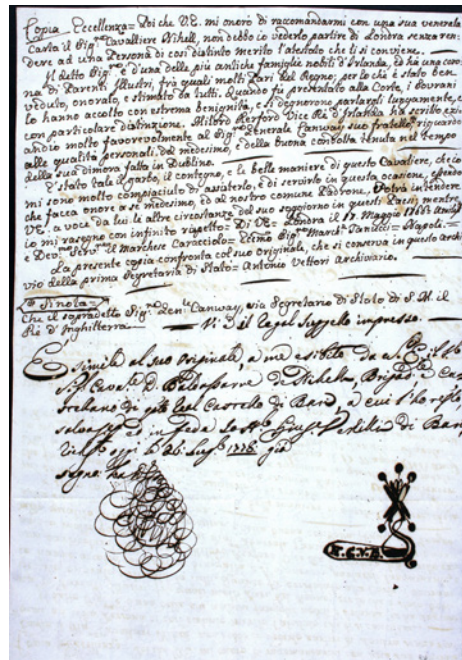 Copia Eccellenza= Poi che V.E. mi onorò di raccomandarmi con una sua venerata
Carta il Sig.r Cavaliere Nihell, non debbo io vederlo partire di Londra senza ren-
dere ad una Persona di così distinto merito l'atestato che li si conviene.
Il detto Sig.r è d'una delle più antiche famiglie nobili d'Irlanda, ed hà una coro-
na di Parenti illustri, frà quali molti Pari del Regno; per lo che è stato ben
veduto, onorato, e stimato da tutti. Quando fù presentato alla Corte, i Sovrani
lo hanno accolto con estrema benignità, e si degnorono parlargli lungamente, e
con particolare distinzione. Milord Herford Vice Rè d'Irlanda ha scritto ezi-
andio molto favorevolmente al Sig.r Generale Canway suo fratello riguardo
alle qualità personali del medesimo, e della buona condotta tenuta nel tempo
della sua dimora fatta in Dublino.
E' stato tale il garbo, il contegno, e le belle maniere di questo Cavaliere, che io
mi sono molto compiaciuto di assisterlo, e di servirlo in questa ocasione, essendo
che facca onore a se medesimo, ed al nostro comune Padrone. Potrà intendere
V.E. a voce da lui le altre circostanze del suo soggiorno in questi Paesi, mentre
io mi rasegno con infinito rispetto= Di V.E.= Londra il 17. Maggio 1766
e Dev.mo Serv.re il Marchese Caracciolo= Ecc.mo Sig.r March.e Tanucci= Napoli.=
La presente copia confronta col suo originale, che si conserva in questo Archi-
vio della prima Segretaria di Stato= Antonio Vettori Archivario.
Che il sopradetto Sig.r Gen.le Canway, era Segretario di Stato di S.M. il
Rè d'Inghilterra. Vi è il Regal suggello impresso.
È simile al suo originale, a me esibito da
Cav.e D. Baldassarre de Nihell, Brigad.e e Cas-
tellano di q.to Real Castello di Bari, a cui l'ho restit.o
salva ed in fede io N.r Giuse.e di Bari,
26. Lug.o 1776